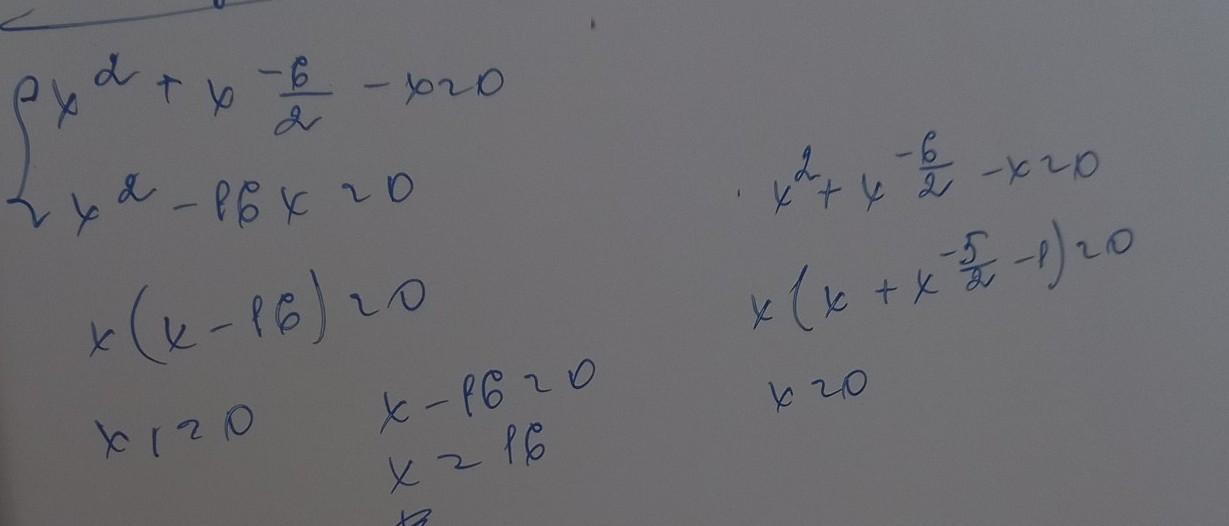 x² + x^(-6/2) - x = 0
x² - 16x = 0
x(x - 16) = 0
x₁ = 0
x - 16 = 0
x = 16
x² + x^(-6/2) - x = 0
x(x + x^(-5/2) - 1) = 0
x = 0